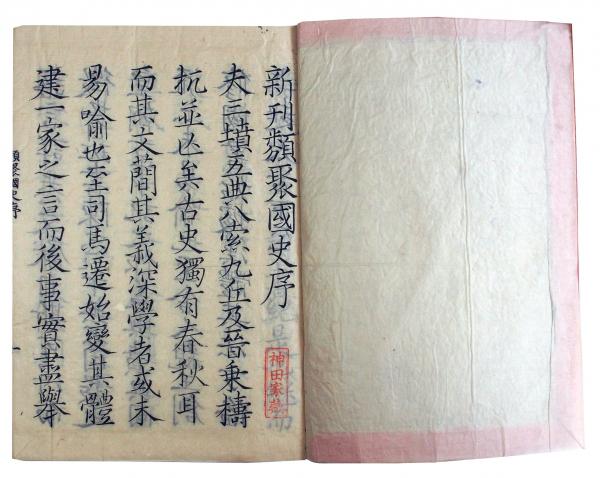 新刊類聚國史序
夫三墳五典八索九丘及晉乗檮
杌並亡矣古史獨有春秋耳
而其文簡其義深學者或未
易喻也至司馬遷始變其體
建一家之言而後事實盡舉
神田家蔵
類聚國史序
一